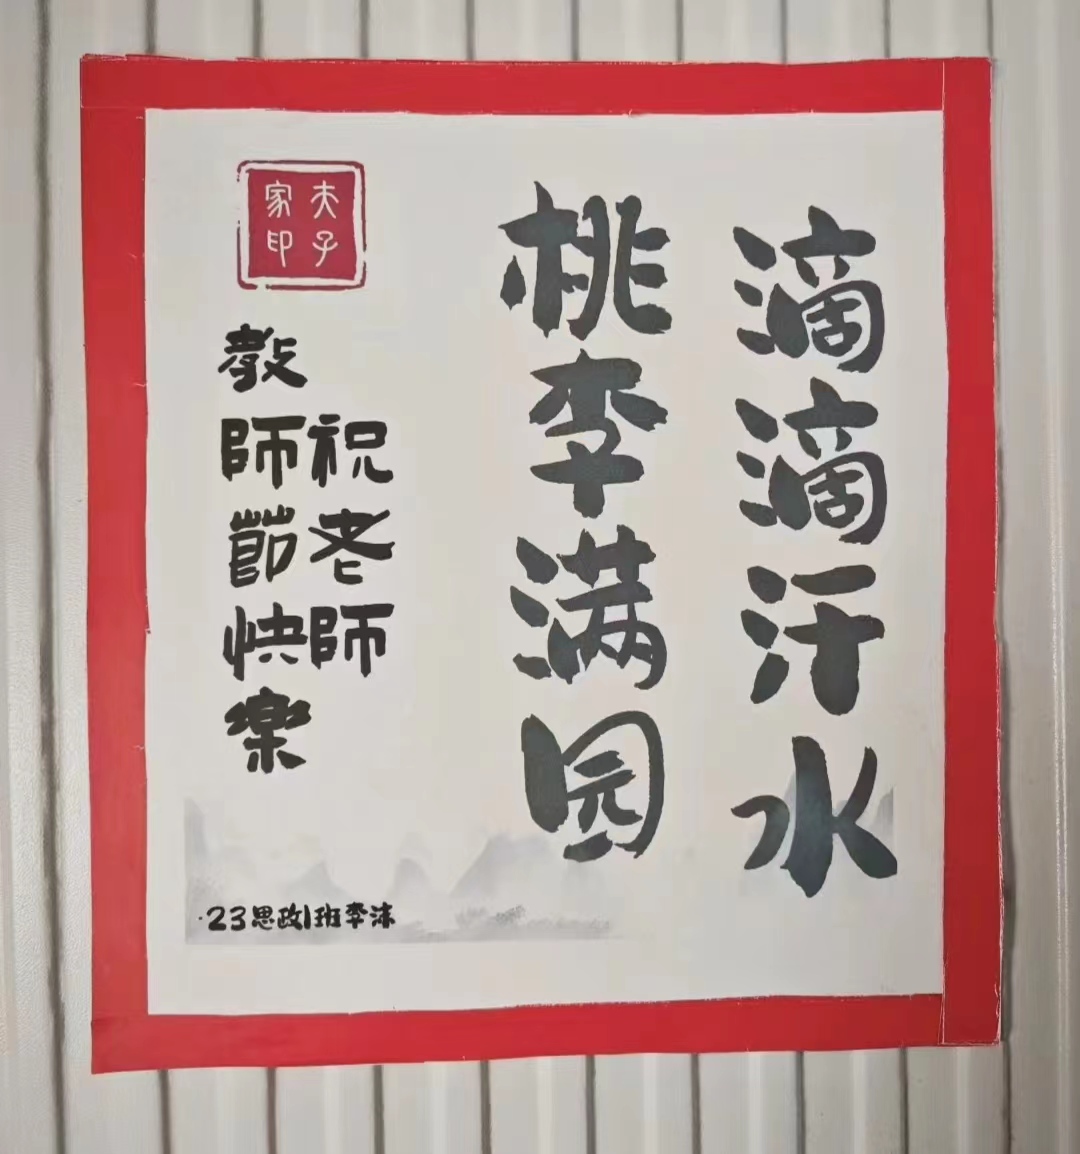 滴滴汗水
桃李满园
祝老师
教師節快樂
夫子
家印
·23思政1班李沫